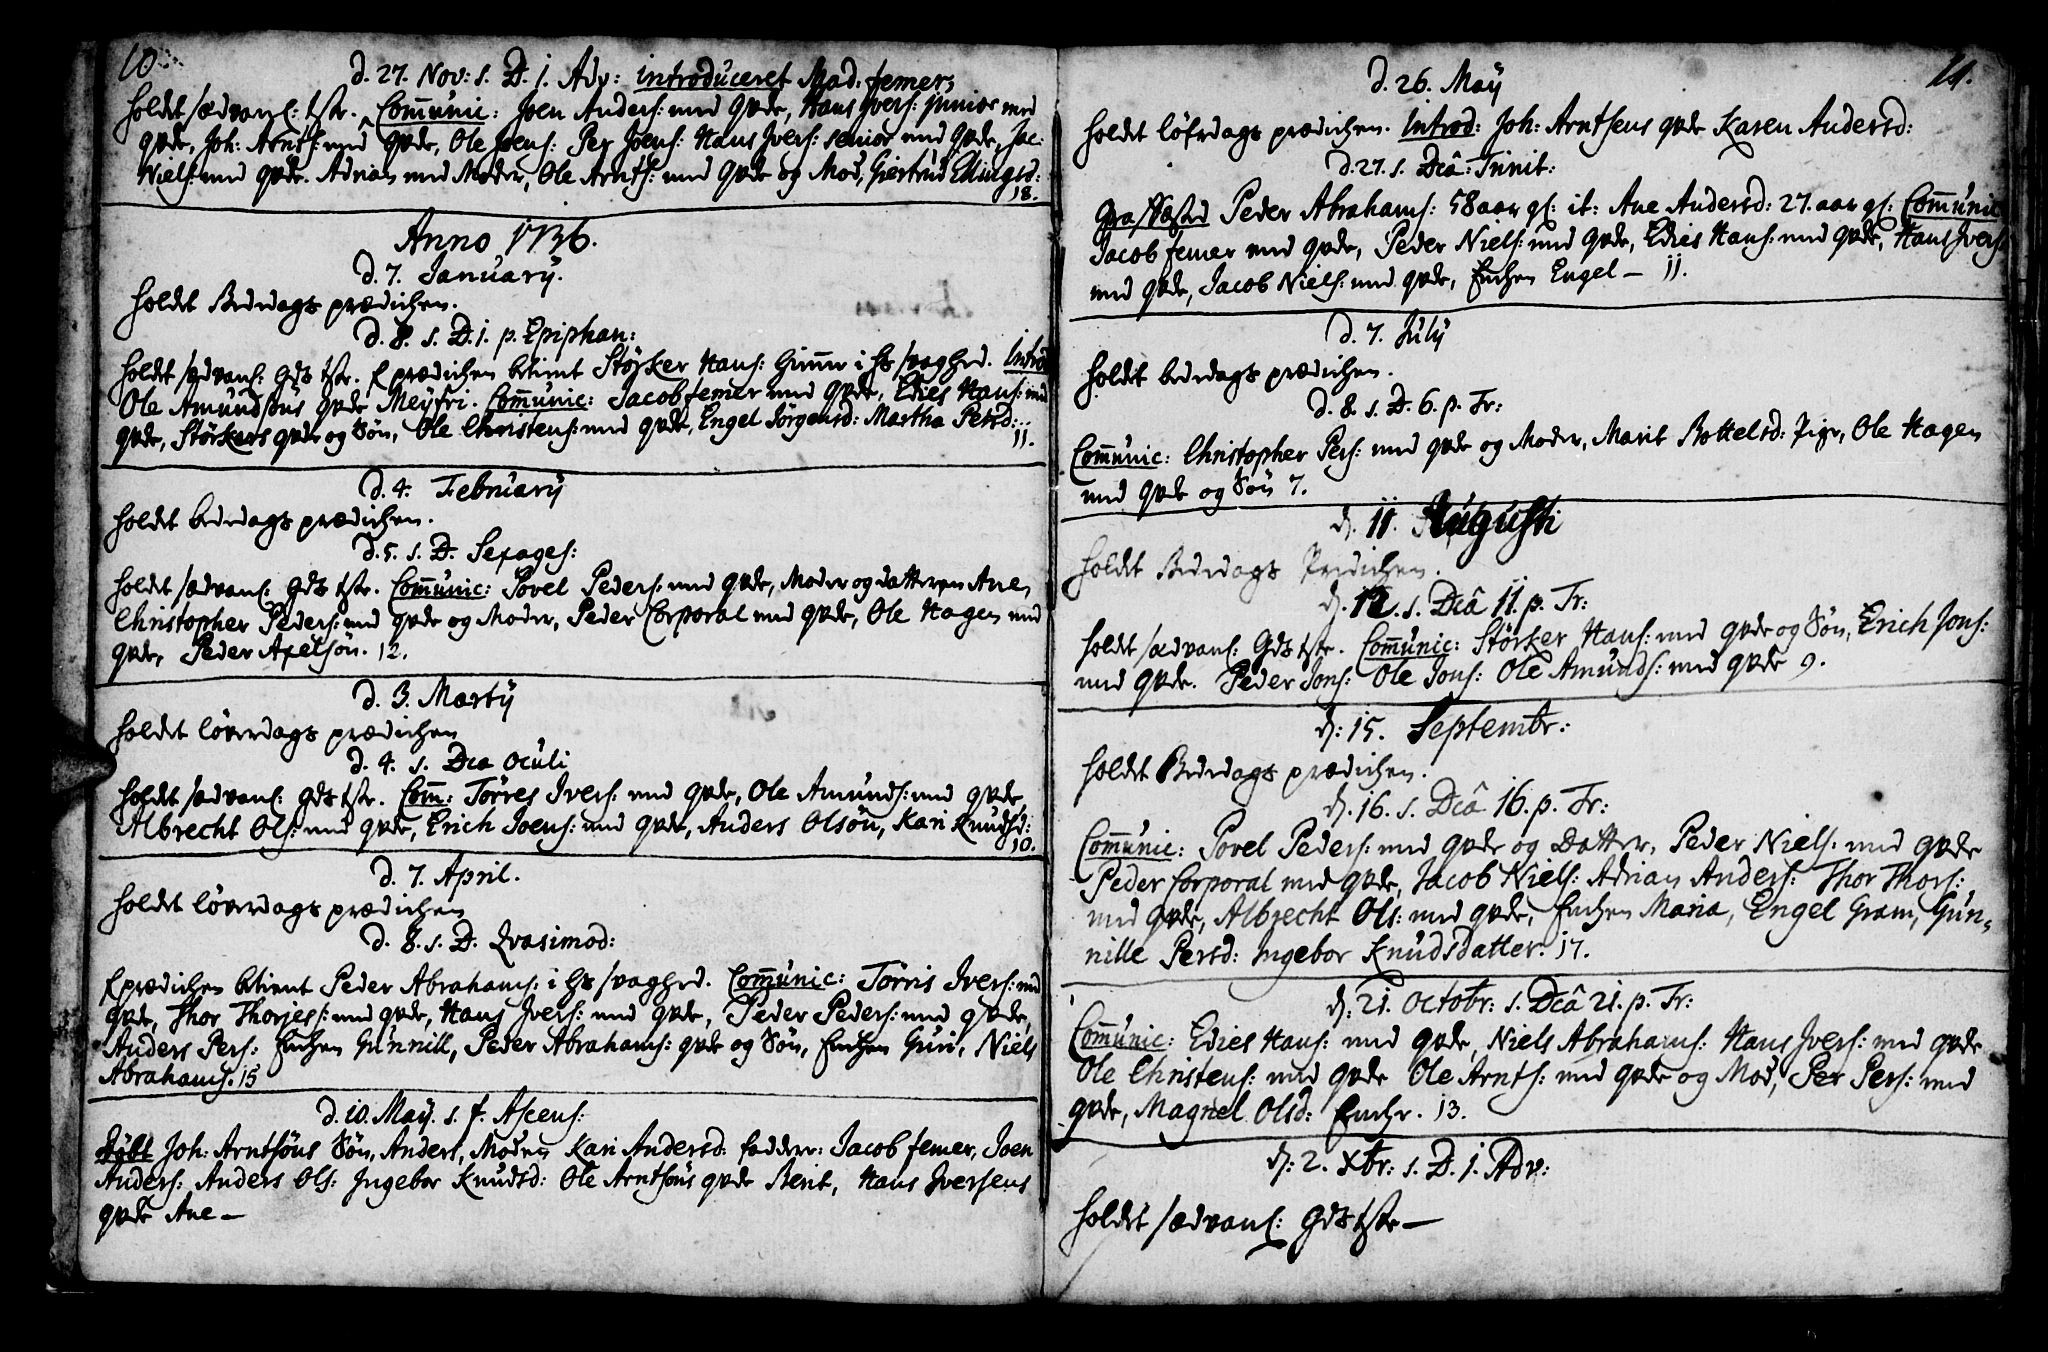 10
d. 27. Nov: s. D. 1. Adv: introduceret Mad. femer,
holdet sædvanl: tste. Com̄unic: Joen Anders: med qvde, Hans Ivers: junior med
qvde, Joh: Arntſ: med qvde, Ole Joens: Per Joens: Hans Ivers: senior med qvde, Jac:
Niels: med qvde. Adrian med Moder, Ole Arntſ: med qvde og Mod, Giertrud Ellingsd:
18.
Anno 1736.
d. 7. Januarÿ.
holdet Bededags prædichen.
d. 8. s. D. 1. p. Epiphan:
holdet sædvanl: Gds tste. prædichen betient Störker Hans: i hs svaghed. Introd
Ole Amundsøns qvde Meyfri. Com̄unic: Jacob femer med qvde, Edies Hans: med
qvde, Störkers qvde og Søn, Ole Christens: med qvde, Engel Jörgensd: Martha Petersd:
11.
d. 4. Februarÿ
holdet bededags prædichen.
d. 5. s. D. Sexages:
holdet sædvanl: Gds tste. Com̄unic: Povel Peders: med qvde, Moder og datteren Ane,
Christopher Peders: med qvde og Moder, Peder Corporal med qvde, Ole Hagen med
qvde, Peder Axelsøn. 12.
d. 3. Martÿ
holdet löverdags prædichen
d. 4. s. Dca Oculi
holdet sædvanl: Gds tste. Com̄: Törres Ivers: med qvde, Ole Amunds: med qvde,
Albrecht Ols: med qvde, Erich Joens: med qvde, Anders Olsøn, Kari Knudsd:
10.
d. 7. April.
holdet löverdags prædichen
d. 8. s. D. Qvasimod:
prædichen betient Peder Abrahams: i hs svaghed. Com̄unic: Törris Ivers: med
qvde, Thor Thorjes: med qvde, Hans Ivers: med qvde, Peder Peders: med qvde,
Anders Pers: Enchen Gunnill, Peder Abrahams: qvde og Søn, Enchen Guri, Niels
Abrahams. 15
d. 10. May. s. f. Ascens:
Döbt Joh: Arntsøns Søn, Anders, Moden Kari Andersd: faddere: Jacob femer, Joen
Anders: Anders Ols: Ingebor Knudsd: Ole Arntsøns qvde Berit, Hans Iversens
qvde Ane —
11.
d. 26. May
holdet löfrdags prædichen. Introd: Joh: Arntsens qvde Karen Andersd:
d. 27. s. Dcâ: Trinit:
Peder Abrahams: 58 aar gl: it: Ane Andersd: 27. aar gl: Com̄unic
Jacob femer med qvde, Peder Niels: med qvde, Edies Hans: med qvde, Hans Ivers:
med qvde, Jacob Niels: med qvde, Enchen Engel — 11.
d. 7. Julÿ
holdet bededags prædichen.
d. 8. s. D. 6. p. Tr:
Com̄unic: Christopher Pers: med qvde og Moder, Marit Bottelsd: Pige, Ole Hagen
med qvde og Søn 7.
d. 11. Augusti
holdet Bededags Predichen.
d. 12. s. Dcâ 11. p. Tr:
holdet sædvanl: Gds tste. Com̄unic: Störker Hans: med qvde og Søn, Erich Jons:
med qvde. Peder Jons: Ole Jons: Ole Amunds: med qvde 9.
d: 15. Septembr:
holdet Bededags prædichen.
d. 16. s. Dcâ 16. p. Tr:
Com̄unic: Povel Peders: med qvde og Datter, Peder Niels: med qvde
Peder Corporal med qvde, Jacob Niels: Adrian Anders: Thor Thors:
med qvde, Albrecht Ols: med qvde, Enchen Maria, Engel Gram, Gun-
nille Persd: Ingebor Knudsdatter. 17.
d: 21. Octobr: s. Dcâ 21. p. Tr:
Com̄unic: Edies Hans: med qvde, Niels Abrahams: Hans Ivers: med qvde
Ole Christens: med qvde Ole Arntſ: med qvde og Mod, Per Pers: med
qvde, Magnel Olsd: Enche. 13.
d: 2. Xbr: s. D. 1. Adv:
holdet sædvanl: Gds tste —